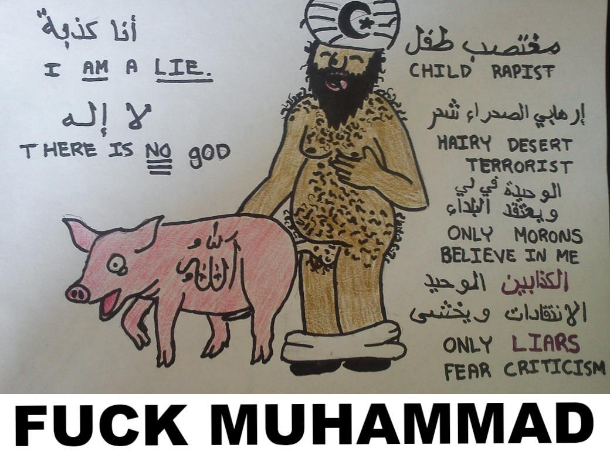 أنا كذبة
I AM A LIE.
لا إله
THERE IS NO GOD
مغتصب طفل
CHILD RAPIST
إرهابي الصحراء شعر
HAIRY DESERT
TERRORIST
الوحيدة في لي
ويعتقد البلداء
ONLY MORONS
BELIEVE IN ME
الكذابين الوحيد
الانتقادات ويخشى
ONLY LIARS
FEAR CRITICISM
FUCK MUHAMMAD